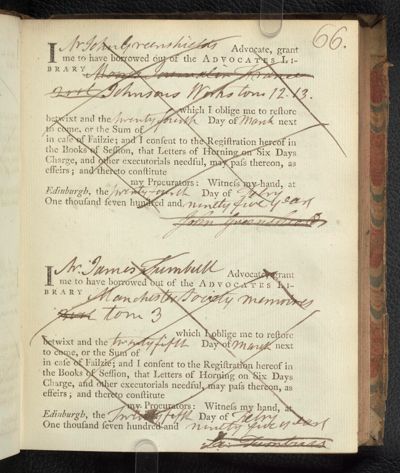 66.
I Mr John Greenshields Advocate, grant
me to have borrowed out of the ADVOCATES LI-
BRARY Moore's Journal in France
and Johnsons Works tom 12. 13.
which I oblige me to restore
betwixt and the twenty fourth Day of March next
to come, or the Sum of
in case of Failzie; and I consent to the Registration hereof in
the Books of Session, that Letters of Horning on Six Days
Charge, and other executorials needful, may pass thereon, as
effeirs; and thereto constitute
my Procurators: Witness my hand, at
Edinburgh, the Day of Febry
One thousand seven hundred and ninety five years
John Greenshields
I Mr. James Turnbull Advocate, grant
me to have borrowed out of the ADVOCATES LI-
BRARY Manchester Society memoires
tom 3
which I oblige me to restore
betwixt and the twenty fifth Day of March next
to come, or the Sum of
in case of Failzie; and I consent to the Registration hereof in
the Books of Session, that Letters of Horning on Six Days
Charge, and other executorials needful, may pass thereon, as
effeirs; and thereto constitute
my Procurators: Witness my hand, at
Edinburgh, the twenty fifth Day of Febry
One thousand seven hundred and ninety five years
Turnbull